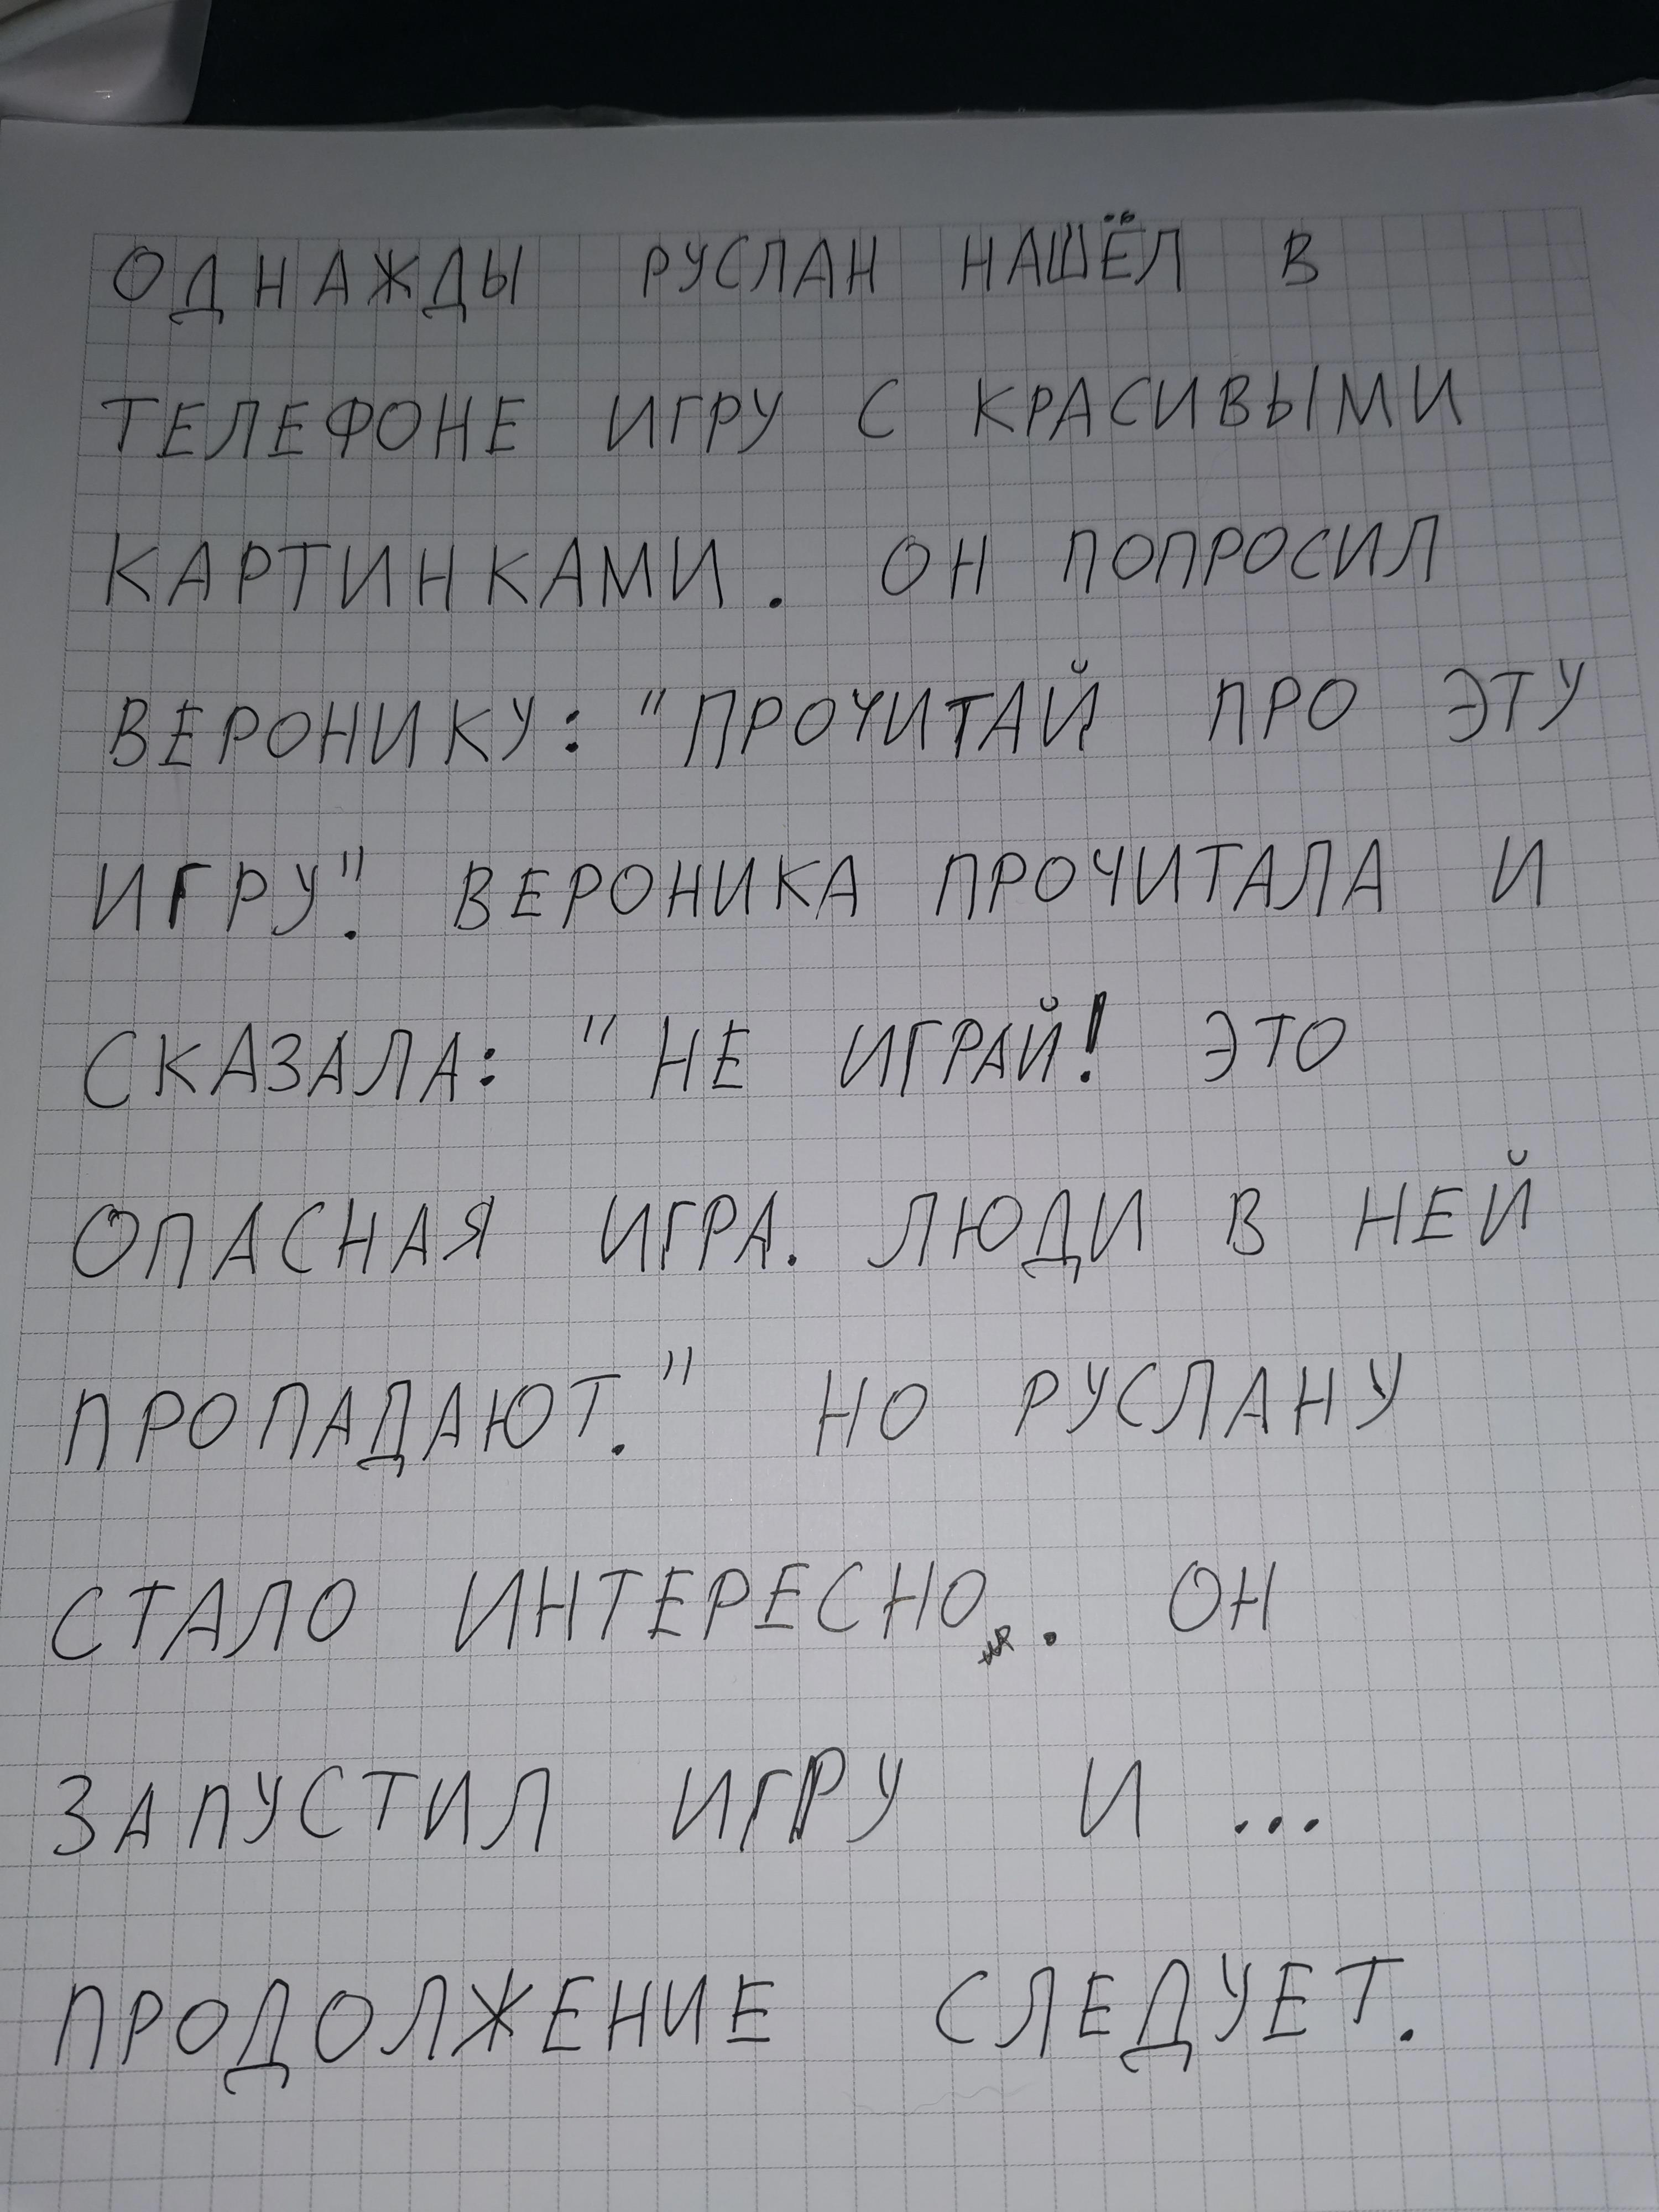 ОДНАЖДЫ РУСЛАН НАШЁЛ В
ТЕЛЕФОНЕ ИГРУ С КРАСИВЫМИ
КАРТИНКАМИ. ОН ПОПРОСИЛ
ВЕРОНИКУ: "ПРОЧИТАЙ ПРО ЭТУ
ИГРУ". ВЕРОНИКА ПРОЧИТАЛА И
СКАЗАЛА: "НЕ ИГРАЙ! ЭТО
ОПАСНАЯ ИГРА. ЛЮДИ В НЕЙ
ПРОПАДАЮТ." НО РУСЛАНУ
СТАЛО ИНТЕРЕСНО. ОН
ЗАПУСТИЛ ИГРУ И ...
ПРОДОЛЖЕНИЕ СЛЕДУЕТ.